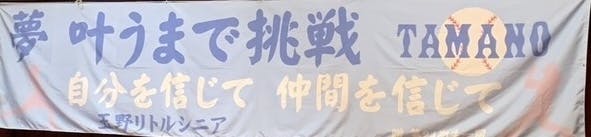 夢 叶うまで挑戦 TAMANO
自分を信じて 仲間を信じて
玉野リトルシニア